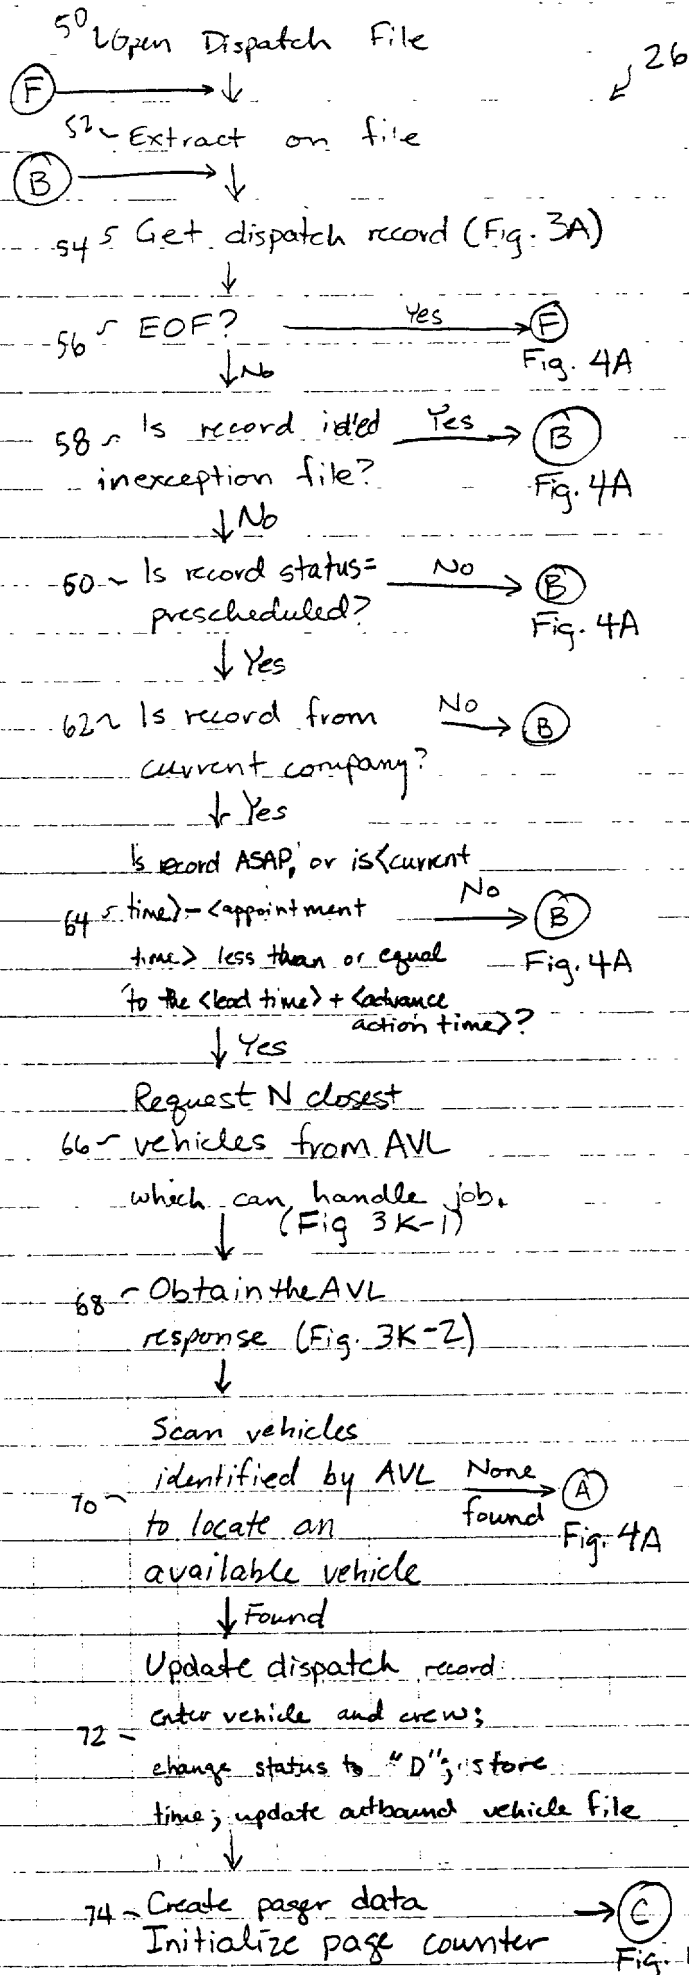 50 Open Dispatch File
26
F
52 Extract on file
B
54 Get dispatch record (Fig. 3A)
56 EOF? Yes F
Fig. 4A
No
58 Is record id'ed Yes B
inexception file? Fig. 4A
No
60 Is record status= No B
prescheduled? Fig. 4A
Yes
62 Is record from No B
current company?
Yes
Is record ASAP, or is <current
64 time> - <appointment No B
time> less than or equal Fig. 4A
to the <lead time> + <advance
action time>?
Yes
Request N closest
66 vehicles from AVL
which can handle job.
(Fig 3K-1)
68 Obtain the AVL
response (Fig. 3K-2)
Scan vehicles
identified by AVL None A
70 to locate an found Fig. 4A
available vehicle
Found
Update dispatch record:
enter vehicle and crew;
72 change status to "D"; store
time; update outbound vehicle file
74 Create pager data C
Initialize page counter Fig.